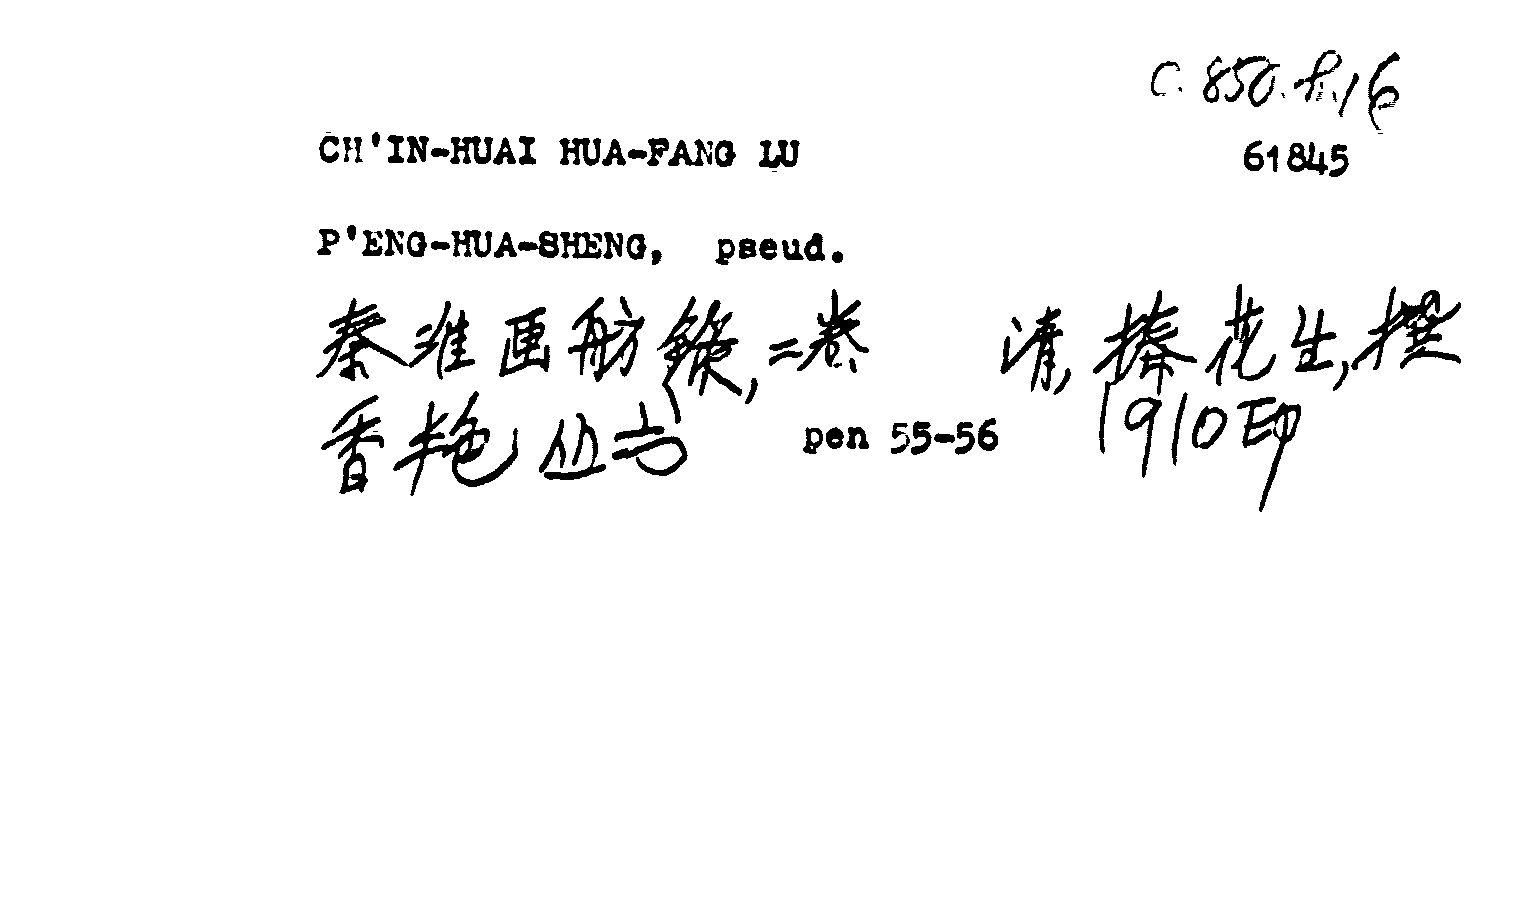 C. 850. f. 16
CH'IN-HUAI HUA-FANG LU 61845
P'ENG-HUA-SHENG, pseud.
秦淮画舫錄, 二卷 清, 捧花生, 撰
香艳丛书 pen 55-56 1910印